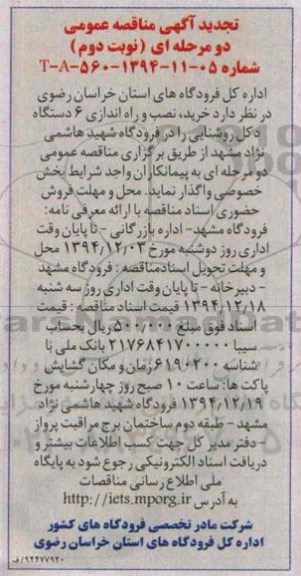 تجدید آگهی مناقصه عمومی
دو مرحله ای (نوبت دوم)
شماره T-A-۵۶۰-۱۳۹۴-۱۱-۰۵
اداره کل فرودگاه های استان خراسان رضوی
در نظر دارد خرید، نصب و راه اندازی ۶ دستگاه
دکل روشنایی را در فرودگاه شهید هاشمی
نژاد مشهد از طریق برگزاری مناقصه عمومی
دو مرحله ای به پیمانکاران واجد شرایط بخش
خصوصی واگذار نماید. محل و مهلت فروش
حضوری اسناد مناقصه با ارائه معرفی نامه:
فرودگاه مشهد- اداره بازرگانی - تا پایان وقت
اداری روز دوشنبه مورخ ۱۳۹۴،۱۲،۰۳ محل
و مهلت تحویل اسناد مناقصه : فرودگاه مشهد
- دبیرخانه - تا پایان وقت اداری روز سه شنبه
۱۳۹۴،۱۲،۱۸ قیمت اسناد مناقصه : قیمت
اسناد فوق مبلغ ۵۰۰,۰۰۰ ریال بحساب
سیبا ۲۱۷۶۸۴۱۷۰۰۰۰۰ بانک ملی با
شناسه ۶۱۹۰۲۰۰ زمان و مکان گشایش
پاکت ها: ساعت ۱۰ صبح روز چهارشنبه مورخ
۱۳۹۴،۱۲،۱۹ فرودگاه شهید هاشمی نژاد
مشهد - طبقه دوم ساختمان برج مراقبت پرواز
- دفتر مدیر کل جهت کسب اطلاعات بیشتر و
دریافت اسناد الکترونیکی رجوع شود به پایگاه
ملی اطلاع رسانی مناقصات
به آدرس http://iets.mporg.ir
شرکت مادر تخصصی فرودگاه های کشور
اداره کل فرودگاه های استان خراسان رضوی
۹۴۴۷۷۹۲۰/ف